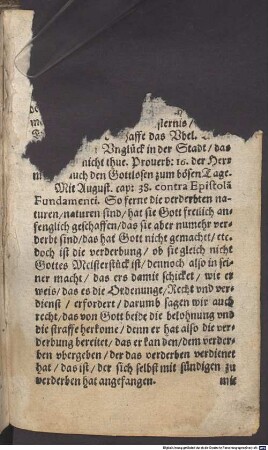 sternis/
schaffe das Vbel.
Vnglück in der Stadt/ das
nicht thue. Prouerb: 16. der Herr
auch den Gottlosen zum bösen Tage.
Mit August. cap: 38. contra Epistolā
Fundamenti. So ferne die verderbten na-
turen/naturen sind/ hat sie Gott freilich an-
fenglich geschaffen/das sie aber numehr ver-
derbt sind/das hat Gott nicht gemachet/ etc.
doch ist die verderbung/ ob sie gleich nicht
Gottes Meisterstück ist/ dennoch also in sei-
ner macht/ das ers damit schicket/ wie er
weis/ das es die Ordenunge/ Recht vnd ver-
dienst/ erfordert/ darumb sagen wir auch
recht/das von Gott beide die belohnung vnd
die straffe herkome/ denn er hat also die ver-
derbung bereitet/ das er kan den/dem verder-
ben vbergeben/ der das verderben verdienet
hat/ das ist/ der sich selbst mit sündigen zu
verderben hat angefangen.
mit